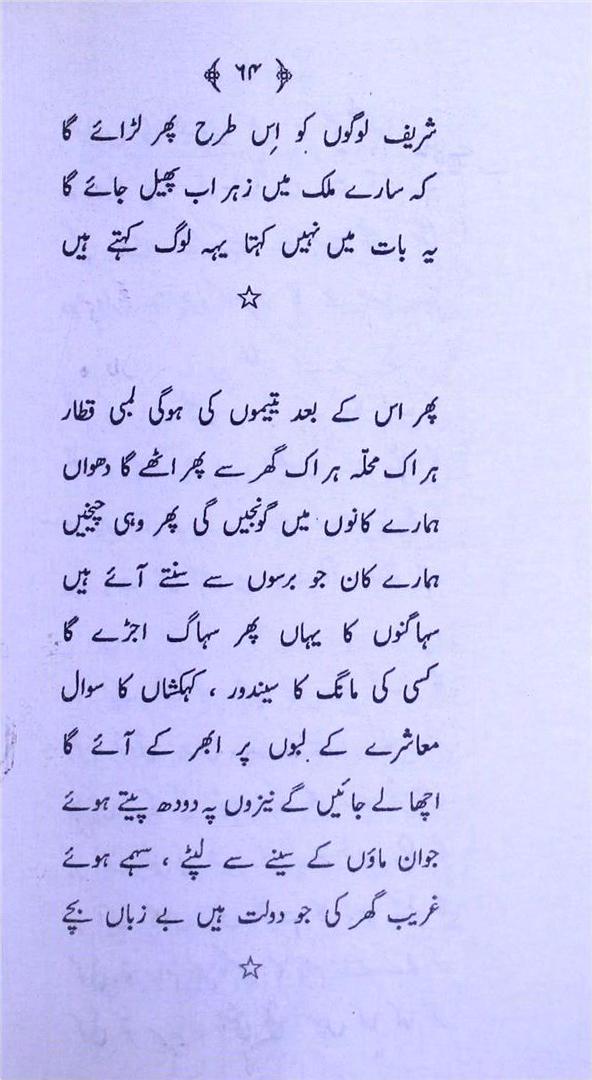 ﴿ ۶۴ ﴾
شریف لوگوں کو اِس طرح پھر لڑائے گا
کہ سارے ملک میں زہر اب پھیل جائے گا
یہ بات میں نہیں کہتا یہہ لوگ کہتے ہیں
☆
پھر اس کے بعد یتیموں کی ہوگی لمبی قطار
ہر اک محلّہ ہر اک گھر سے پھر اٹھے گا دھواں
ہمارے کانوں میں گونجیں گی پھر وہی چیخیں
ہمارے کان جو برسوں سے سنتے آئے ہیں
سہاگنوں کا یہاں پھر سہاگ اجڑے گا
کسی کی مانگ کا سیندور ، کہکشاں کا سوال
معاشرے کے لبوں پر ابھر کے آئے گا
اچھالے جائیں گے نیزوں پہ دودھ پیتے ہوئے
جوان ماؤں کے سینے سے لپٹے ، سہمے ہوئے
غریب گھر کی جو دولت ہیں بے زباں بچے
☆